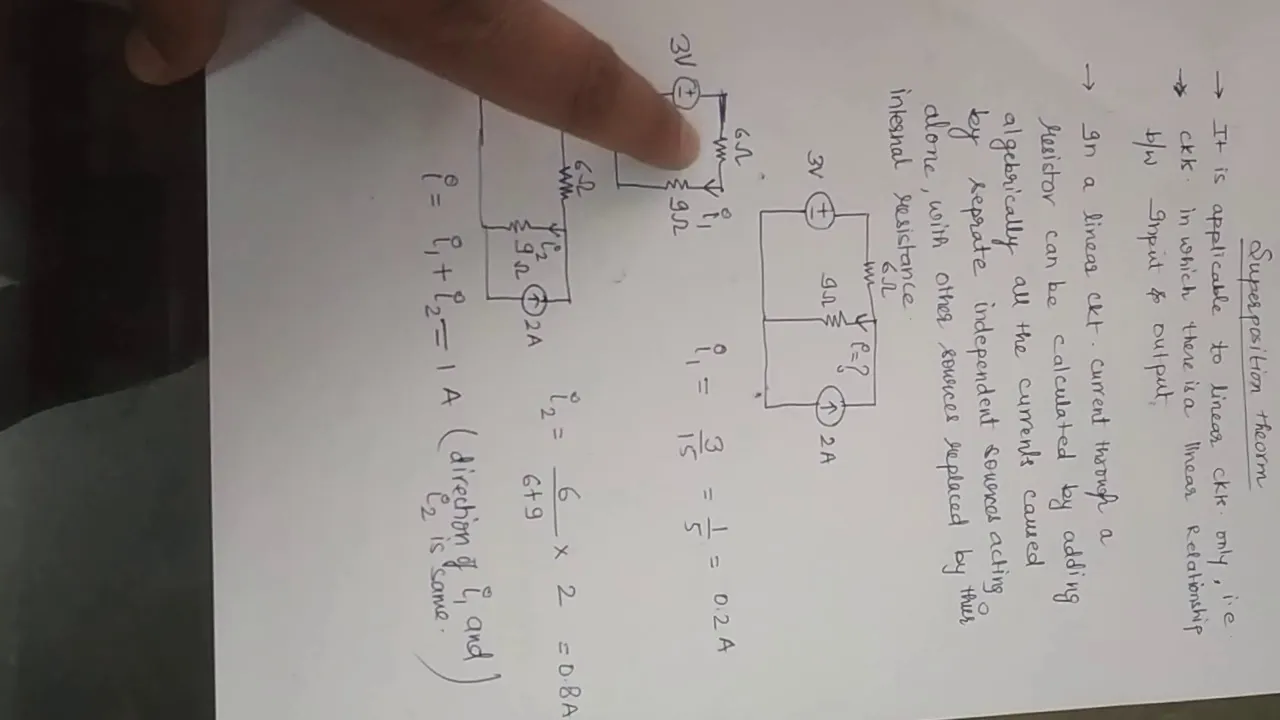 Superposition theorm
→ It is applicable to linear ckt. only, i.e.
→ ckt. in which there is a linear Relationship
b/w Input & output.
→ In a linear ckt. current through a
resistor can be calculated by adding
algebrically all the currents caused
by seprate independent sources acting
alone, with other sources replaced by their
internal resistance.
3V
6Ω
9Ω
i=?
2A
3V
6Ω
i₁
9Ω
i₁ = 3/15 = 1/5 = 0.2A
6Ω
i₂
9Ω
2A
i₂ = 6/6+9 × 2 = 0.8A
i = i₁ + i₂ = 1 A (direction of i₁ and
i₂ is same.)